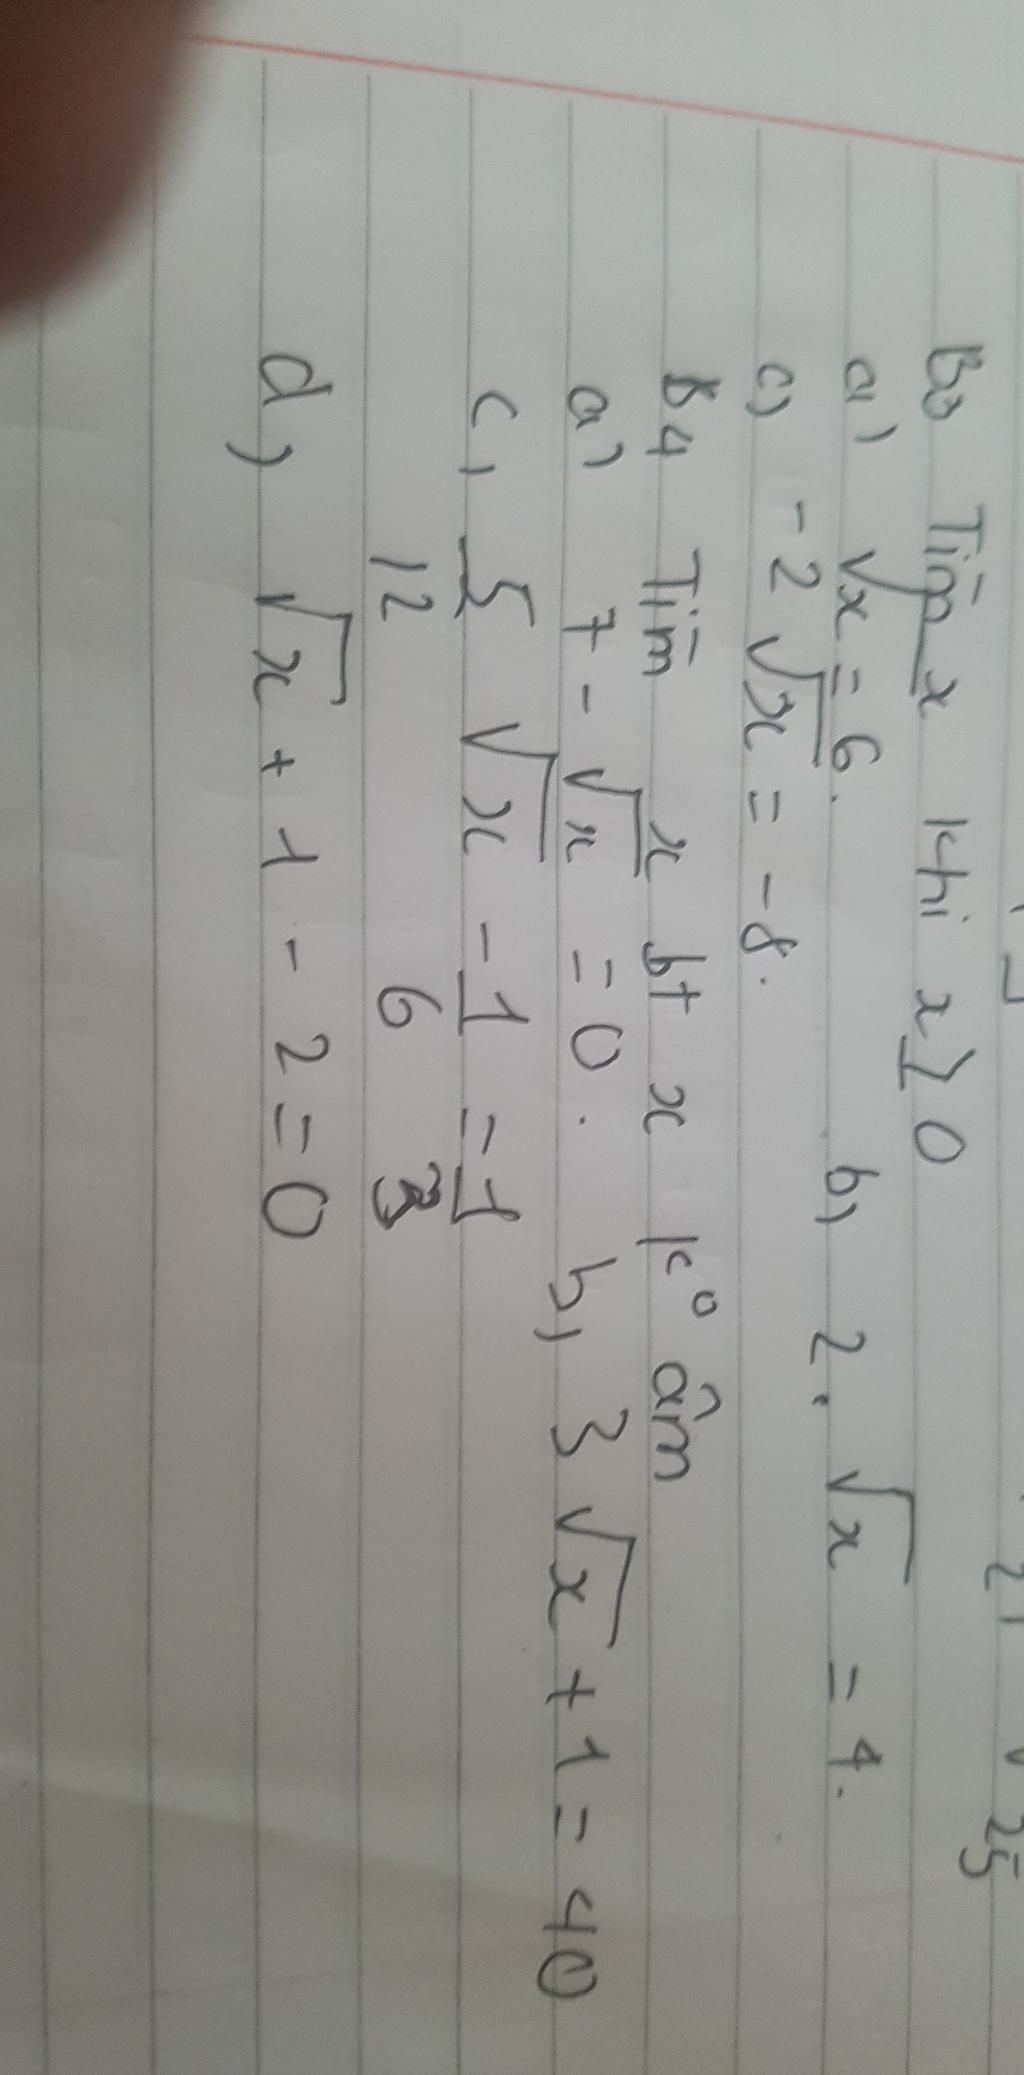 21 √25
B3 Tìm x khi x ≥ 0
a) √x = 6. b, 2. √x = 4.
c) -2√x = -8.
B4 Tìm x bt x k° âm
a) 7 - √x = 0. b, 3√x + 1 = 40
c, 5/12 √x - 1/6 = 1/3
d, √x + 1 - 2 = 0